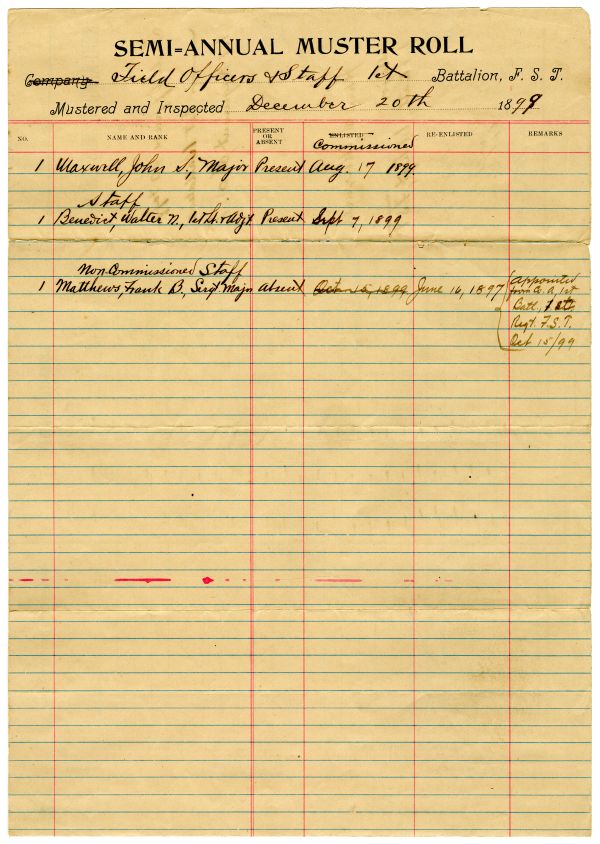 SEMI-ANNUAL MUSTER ROLL
Company Field Officers & Staff 1st Battalion, F. S. T.
Mustered and Inspected December 20th 1899
NO. NAME AND RANK PRESENT OR ABSENT ENLISTED Commissioned RE-ENLISTED REMARKS
1 Maxwell, John S., Major Present Aug. 17 1899
Staff
1 Benedict, Walter N., 1st Lt. & Adjt. Present Sept 7, 1899
Non Commissioned Staff
1 Matthews, Frank B., Sergt Major absent Oct. 15, 1899 June 16, 1897 Appointed
from Co. A, 1st
Batl., 1st
Regt. F.S.T.
Oct 15/99